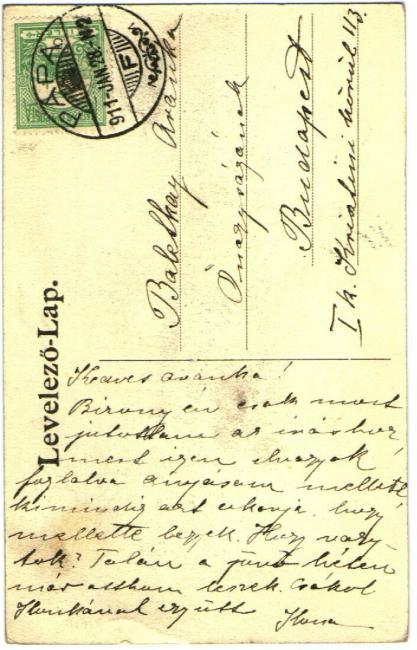 PÁPA
911 JAN. 28
Levelező-Lap.
Aranka
Önagyságának
Budapest
I k. Krisztina körút 113.
Kedves Aranka!
Bizony én csak most
jutottam az íráshoz
mert igen el vagyok
foglalva anyásom mellett
ki mindig azt akarja, hogy
mellette legyek. Hogy vagy
tok? Talán a jövő héten
már otthon leszek. Csókol
Ilonkával együtt
Ilona